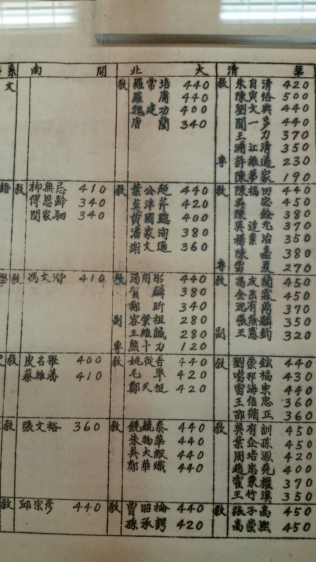 系 南 開 北 大 清 華
文 教 羅常培 440 教 朱自清 420
羅庸 440 陳寅恪 500
魏建功 400 劉文典 440
唐蘭 340 聞一多 440
王力 370
浦江清 350
專 許維遹 230
陳夢家 190
語 教 柳無忌 410 教 葉公超 440 教 陳福田 450
傅恩齡 340 莫泮芹 420 380
聞家駟 340 黃國聰 380 陳銓 370
潘家洵 400 吳達元 370
謝文通 360 楊業治 350
陳嘉 380
專 270
學 教 馮文潛 410 教 湯用彤 440 教 馮友蘭 450
賀麟 380 金岳霖 450
鄭昕 340 沈有鼎 370
副 容肇祖 280 張蔭麟 400
王維誠 280 副 王憲鈞 320
專 熊十力 120
教 皮名舉 400 教 姚從吾 440 教 劉崇鋐 440
蔡維藩 410 毛準 420 噶邦福 430
鄭天挺 420 雷海宗 440
王信忠 360
邵循正 360
教 張文裕 360 教 饒毓泰 440 教 吳有訓 450
朱物華 440 葉企孫 450
吳大猷 440 周培源 440
鄭華熾 440 趙忠堯 400
霍秉權 370
王竹溪 350
教 邱宗彥 440 教 曾昭掄 440 教 張子高 450
孫承諤 420 高崇熙 450